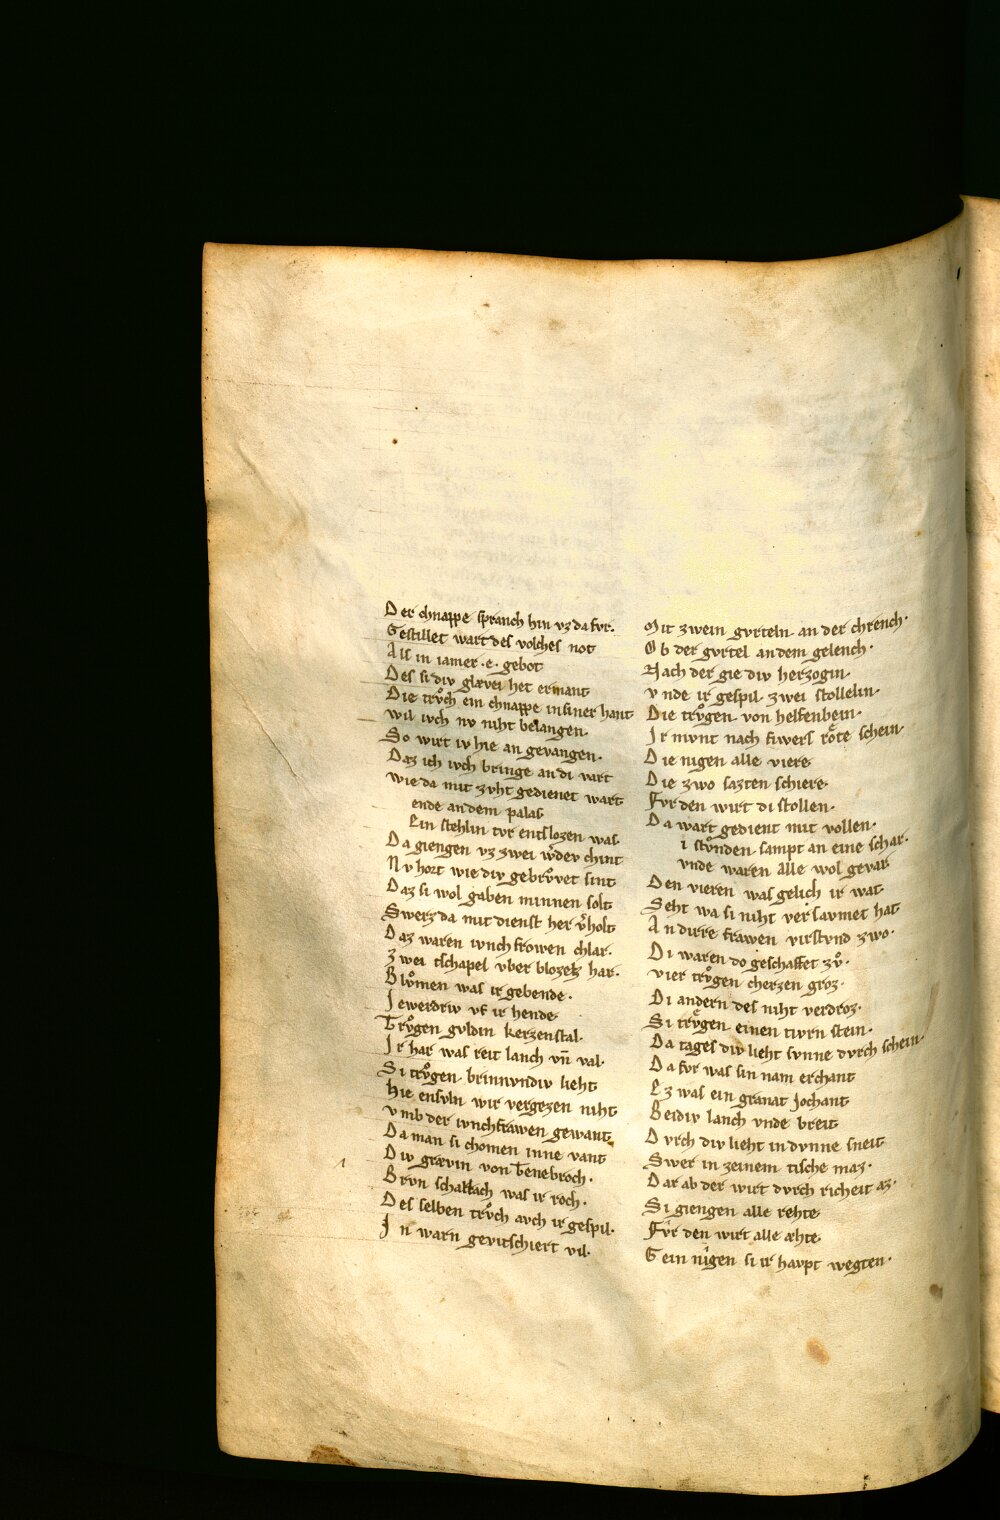 Der chnappe spranch hin vz da fvr.
Gestillet wart des volches not
Als in iamer .e. gebot
Des si div glævei het ermant
Die trv̊ch ein chnappe in siner hant
wil ivch nv niht belangen.
So wirt iv hie an gevangen.
Daz ich ivch bringe an di vart
wie da mit zvht gedienet wart
ende an dem palas
Ein stehlin tvr entslozen was.
Da giengen vz zwei w̾dev chint
Nv hort wie div gebrv̊vet sint
Daz si wol gaben minnen solt
Swerz da mit dienst her v̾holt
Daz waren ivnchfrowen chlar.
Zwei tschapel vber blozez har.
Blv̊men was ir gebende.
Jewerdriv vf ir hende
Trv̊gen gvldin kerzenstal.
Jr har was reit lanch vn̄ val.
Si trv̊gen brinnvndiv lieht
hie ensvln wir vergezen niht
vmb der ivnchfrawen gewant.
Da man si chomen inne vant
Div grævin von Tenebroch.
Brvn scharlach was ir roch.
Des selben trv̊ch avch ir gespil.
Jn warn gevitschiert vil.
Mit zwein gvrteln an der chrench.
Ob der gvrtel an dem gelench.
Nach der gie div herzogin
vnde ir gespil zwei stollelin.
Die trv̊gen von helfenbein.
Jr mvnt nach fivers rote schein.
Die nigen alle viere
Die zwo sazten schiere
Fvr den wirt di stollen.
Da wart gedient mit vollen.
i stv̊nden sampt an eine schar.
vnde waren alle wol gevar
Den vieren was gelich ir wat
Seht wa si niht versavmet hat
An dirre frawen virstvnd zwo.
Di waren do geschaffet zv̊.
vier trv̊gen cherzen groz.
Di andern des niht verdroz.
Si trv̊gen einen tivrn stein.
Da tages div lieht svnne dvrch schein.
Da fvr was sin nam erchant
Ez was ein granat Jochant
Beidiv lanch vnde breit
Dvrch div lieht in dvnne sneit
Swer in zeinem tische maz.
Dar ab der wirt dvrch richeit az.
Si giengen alle rehte
Fvr den wirt alle æhte
Gein nigen si ir havpt wegten.